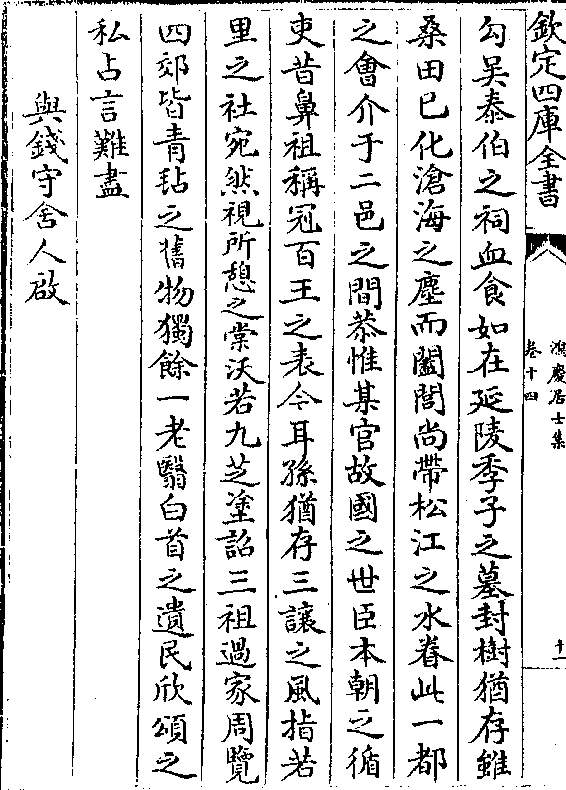 欽定四庫全書
鴻慶居士集
卷十四
十一
勾吴泰伯之祠血食如在延陵季子之墓封樹猶存雖
桑田已化滄海之塵而闔閭尚帶松江之水眷此一都
之會介于二邑之間恭惟某官故國之世臣本朝之循
吏昔鼻祖稱冠百王之表今耳孫猶存三讓之風指若
里之社宛然視所憩之棠沃若九芝塗詔三祖過家周覽
四郊皆青氊之舊物獨餘一老翳白首之遺民欣頌之
私占言難盡
與錢守舍人啟